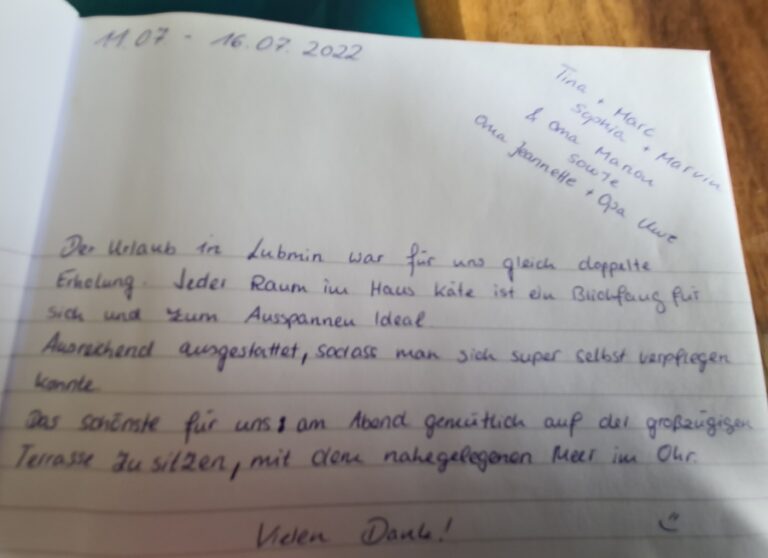 11.07 - 16.07.2022
Tina + Marc
Sophia + Marvin
& Oma Manon
sowie
Oma Jeannette + Opa Uwe
Der Urlaub in Lubmin war für uns gleich doppelte
Erholung. Jeder Raum im Haus Käte ist ein Blickfang für
sich und zum Ausspannen Ideal
Ausreichend ausgestattet, sodass man sich super selbst verpflegen
konnte.
Das schönste für uns: am Abend gemütlich auf der großzügigen
Terrasse zu sitzen, mit dem nahegelegenen Meer im Ohr.
Vielen Dank!